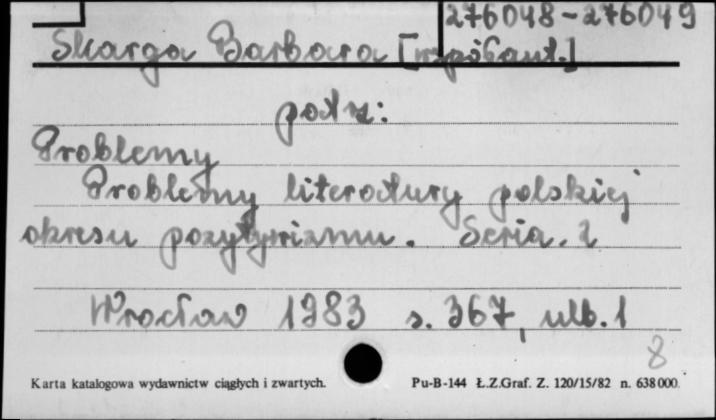 276048-276049
Skarga Barbara [współaut.]
patrz:
Problemy
Problemy literatury polskiej
okresu pozytywizmu. Seria. 2
Wrocław 1983 s. 367, ulb. 1
8
Karta katalogowa wydawnictw ciągłych i zwartych. Pu-B-144 Ł.Z.Graf. Z. 120/15/82 n. 638000.